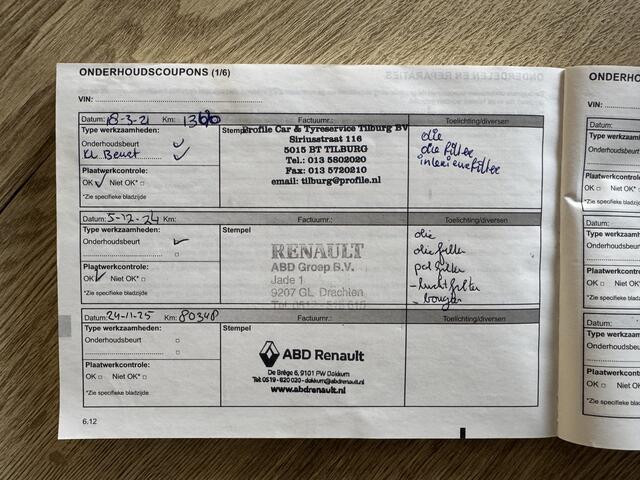 ONDERHOUDSCOUPONS (1/6)
VIN:
Datum: 18-3-21 Km: Factuurnr.: Toelichting/diversen
Type werkzaamheden: Stempel Profile Car & Tyreservice Tilburg BV olie
Onderhoudsbeurt Siriusstraat 116 oliefilter
Kl. Beurt 5015 BT TILBURG interieurfilter
Plaatwerkcontrole: Tel.: 013 5802020
OK Niet OK* Fax: 013 5720210
*Zie specifieke bladzijde email: tilburg@profile.nl
Datum: 5-12-24 Km: Factuurnr.: Toelichting/diversen
Type werkzaamheden: Stempel olie
Onderhoudsbeurt RENAULT oliefilter
ABD Groep B.V. pol filter
Plaatwerkcontrole: Jade 1 - luchtfilter
OK Niet OK* 9207 GL Drachten - bougies
*Zie specifieke bladzijde
Datum: 24-11-25 Km: Factuurnr.: Toelichting/diversen
Type werkzaamheden: Stempel
Onderhoudsbeurt ABD Renault
Plaatwerkcontrole: De Brêge 6, 9101 PW Dokkum
OK Niet OK* Tel: 0519 - 820 020 - dokkum@abdrenault.nl
*Zie specifieke bladzijde www.abdrenault.nl
6.12
ONDERHO
VIN:
Datum:
Type werkza
Onderhoudsb
Plaatwerkcont
OK Niet O
*Zie specifieke bl
Datum:
Type werkzaa
Onderhoudsbe
Plaatwerkcontr
OK Niet OK
*Zie specifieke bla
Datum:
Type werkzaa
Onderhoudsbe
Plaatwerkcontro
OK Niet OK*
*Zie specifieke blad